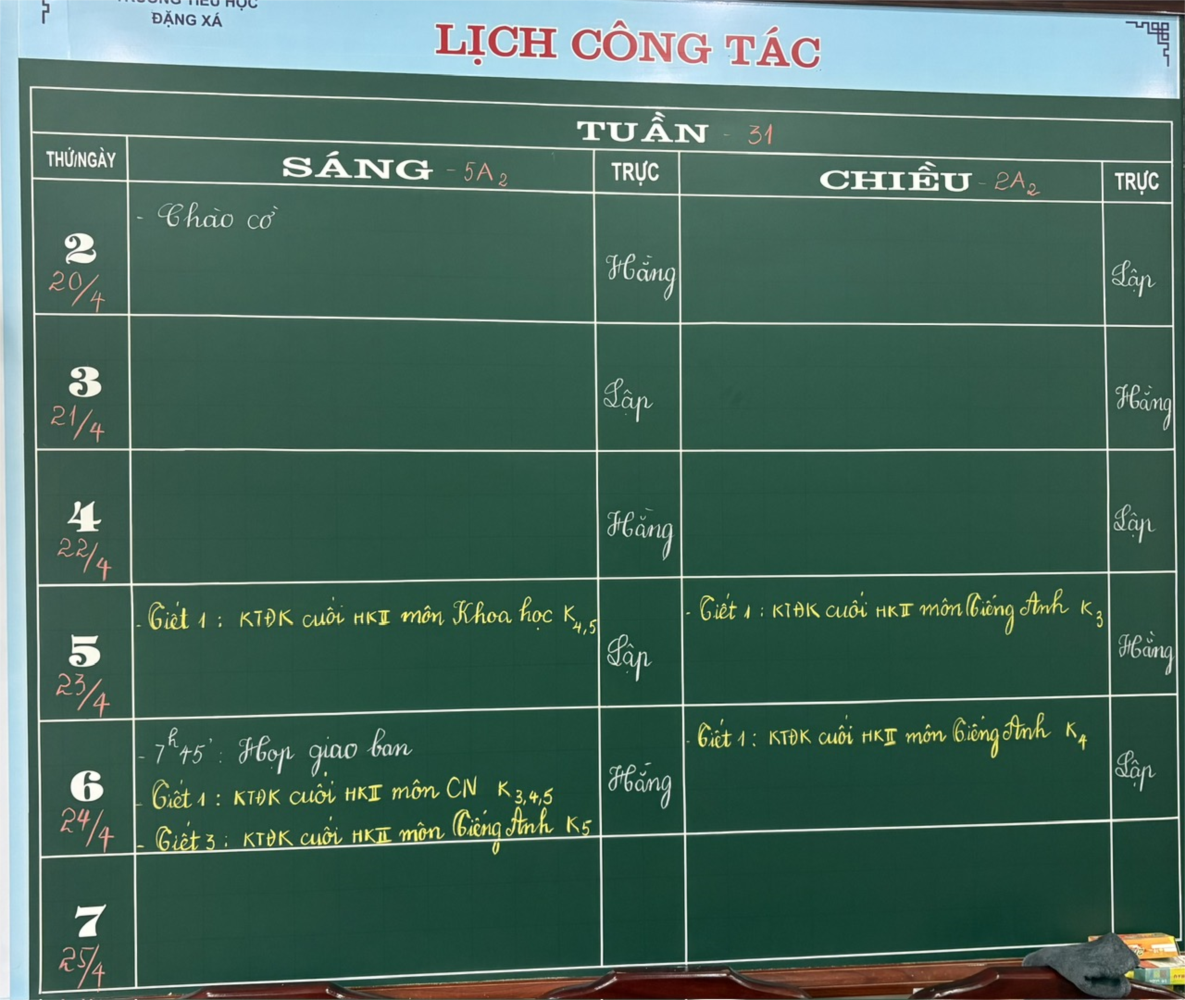 TRƯỜNG TIỂU HỌC
ĐẶNG XÁ
LỊCH CÔNG TÁC
TUẦN - 31
THỨ/NGÀY
SÁNG - 5A2
TRỰC
CHIỀU - 2A2
TRỰC
2
20/4
- Chào cờ
Hằng
Lập
3
21/4
Lập
Hằng
4
22/4
Hằng
Lập
5
23/4
- Tiết 1: KTĐK cuối HKII môn Khoa học K4,5
Lập
- Tiết 1: KTĐK cuối HKII môn Tiếng Anh K3
Hằng
6
24/4
- 7h45': Họp giao ban
- Tiết 1: KTĐK cuối HKII môn CN K3,4,5
- Tiết 3: KTĐK cuối HKII môn Tiếng Anh K5
Hằng
- Tiết 1: KTĐK cuối HKII môn Tiếng Anh K4
Lập
7
25/4